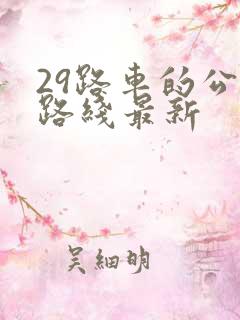 29路車的公
路綫最新
吴細明